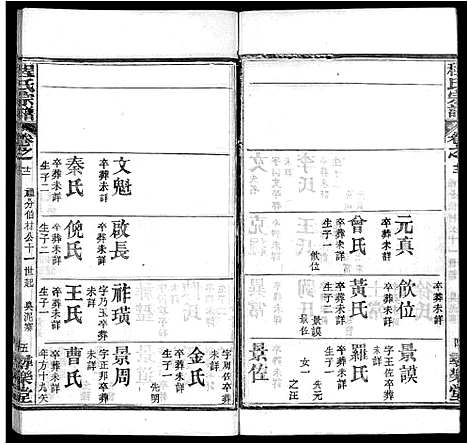 程氏宗譜
卷之
元真
卒葬未詳
曾氏
卒葬未詳
生子一
飲位
飲位
卒葬未詳
黃氏
卒葬未詳
生子二
景謨
景佐
景謨
卒葬未詳
羅氏
卒葬未詳
生子二
先元
之汪
景佐
字周佐卒葬
未詳
金氏
卒葬未詳
生子一
先明
文魁
卒葬未詳
秦氏
卒葬未詳
生子二
啟長
卒葬未詳
倪氏
卒葬未詳
生子二
祚璜
字乃玉卒葬
未詳
王氏
卒葬未詳
生子一
景周
字正邦卒葬
未詳
曹氏
卒葬未詳
年方十九矢
程氏宗譜
卷之
禮分伯村公十一世起
五